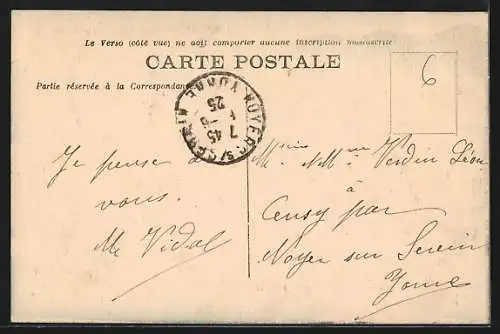 Le Verso (côté vue) ne doit comporter aucune inscription manuscrite
CARTE POSTALE
Partie réservée à la Correspondance
6
NOYERS S/ SEREIN YONNE
7 45
25
Je pense à
vous.
M Vidal
Verdin Léon
à
Censy par
Noyer sur Serein
Yonne